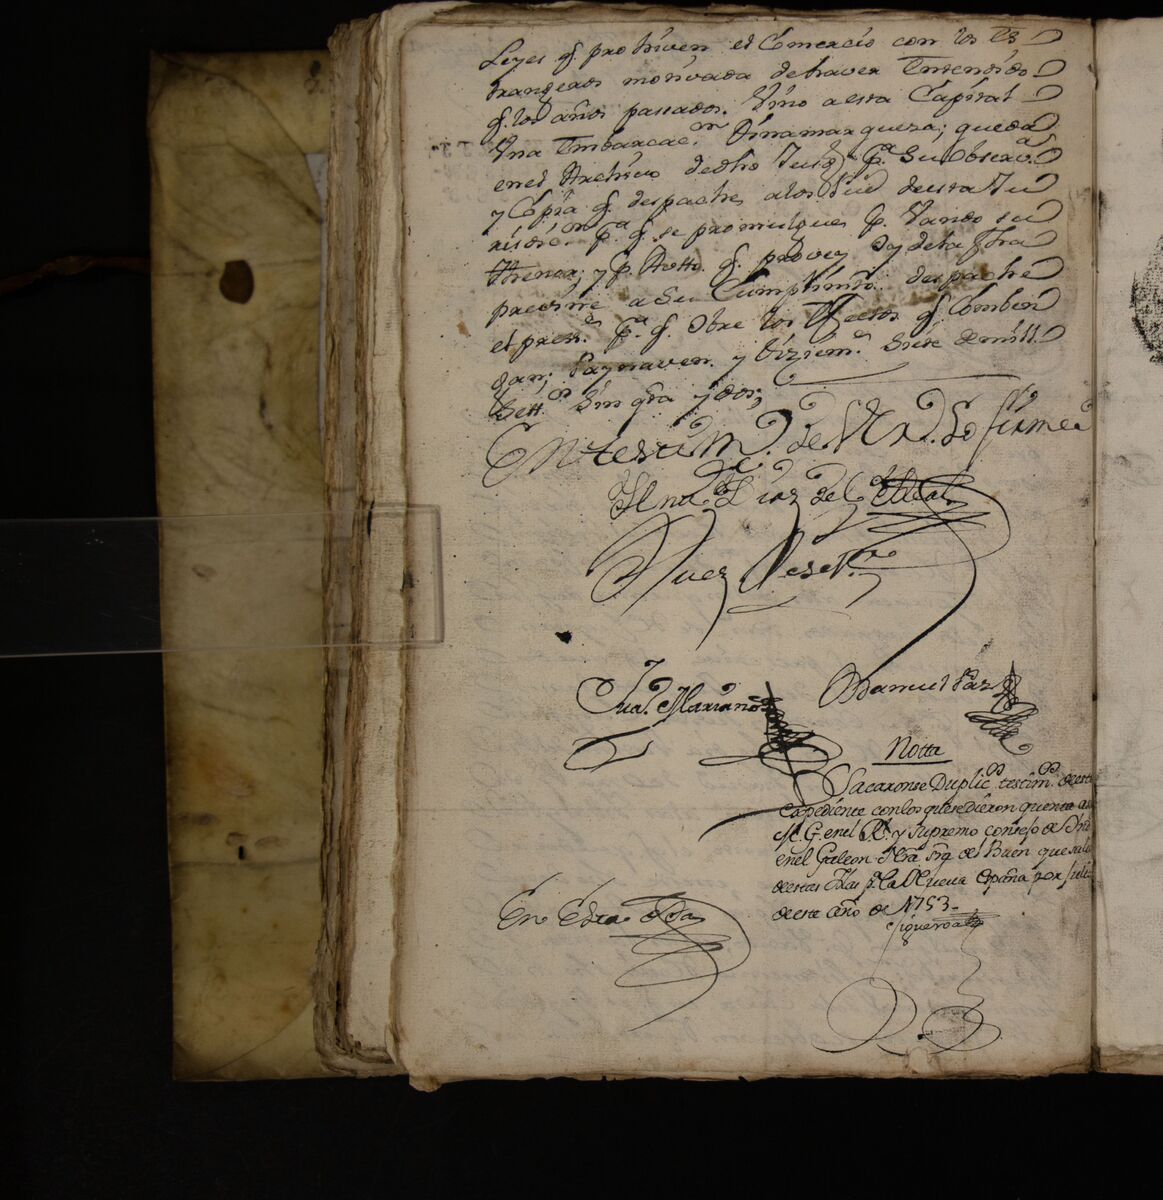 Leyes q̃. prohiven el Comercio con los Es
trangeros motivada de haver Entendido
q̃. los años passados. Vino a esta Capital
Una Embarcac.on Dinamarqueza; queda
en el Archivo de dho Juzg.o p.a Su Observ.a
y Copia q̃. despaché a los de esta Ju
risdic.on p.a q̃. se promulgue p. Vando su
thenor; y p. Autto. q̃. proveý oy de la fha
pressnte a Su Cumplimto. despaché
el press.te p.a q̃. Obre los Efectos q̃. Comben
gan; y Diziem.e Siete de mill
Sett.os Sinqta y dos;
En testim.o de Verd. Lo firmé
Díaz del
Juez Recet.r
Jua.n Mariano
Manuel Paz
Notta
Sacaronse Duplic.os testim.os de este
expediente con los que se dieron quenta a su
M. G. en el R.l y Supremo consejo de Ynd
en el Galeon Nra Sra del Buen que salió
de estas Yslas p.a la Nueva España por Julio
de este año de 1753.
Figueroa